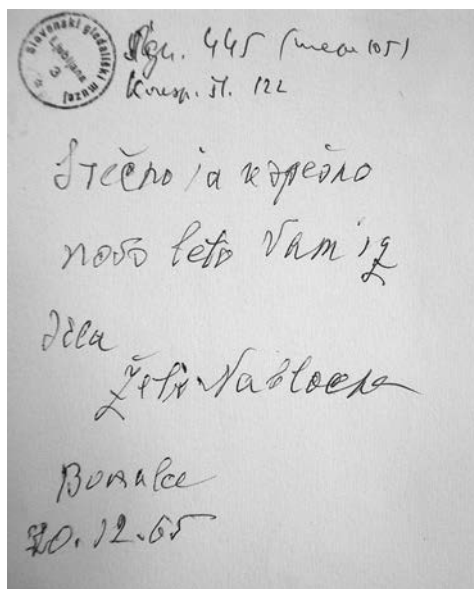 Slovenski gledališki muzej
Ljubljana
3
Sgn. 445
Koresp. št. 122
Srečno in uspešno
novo leto Vam iz
srca
želi Nablocka
20.12.65